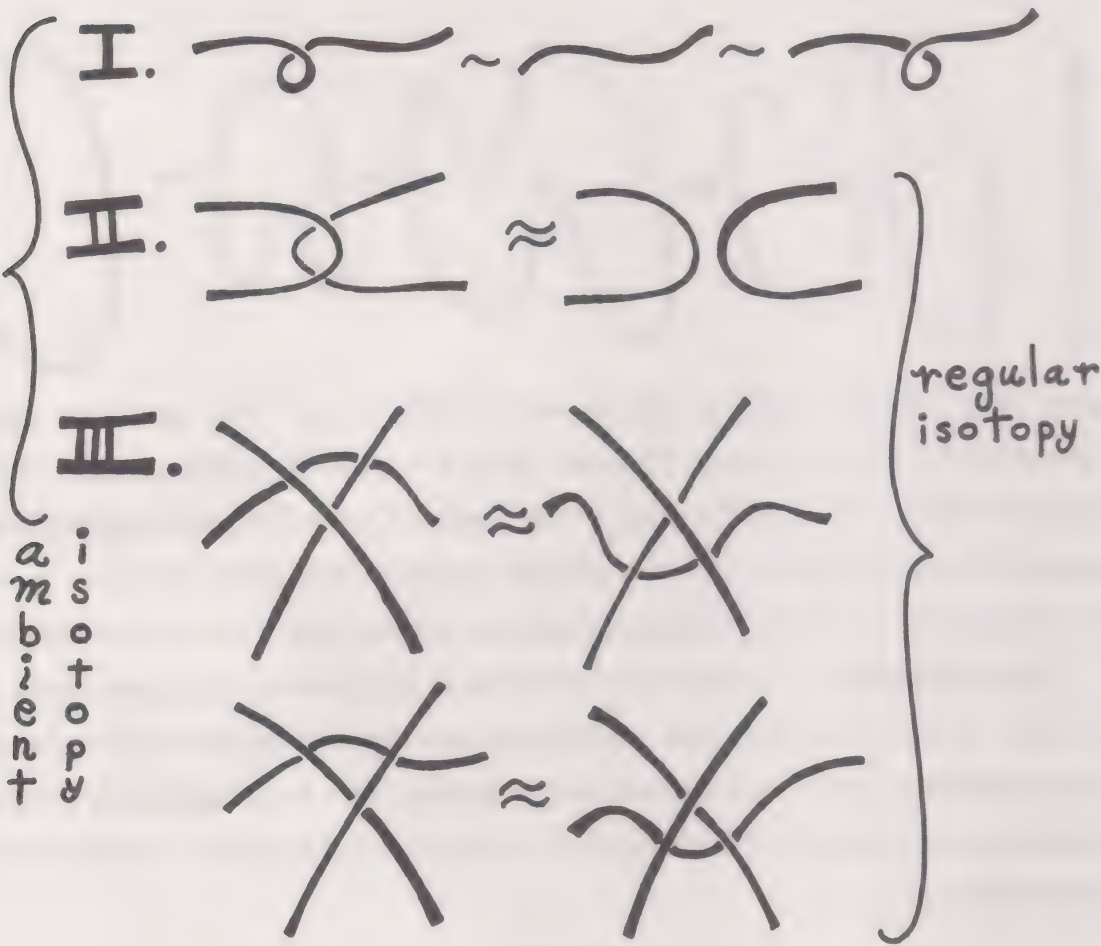 I. ~ ~
II. ≈
regular
isotopy
III. ≈
ambient
isotopy
≈